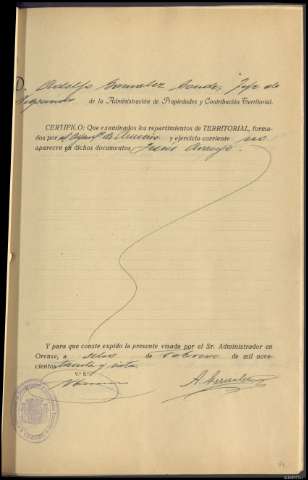 D. Adolfo González Conde, Jefe de
de la Administración de Propiedades y Contribución Territorial.
CERTIFICO: Que examinados los repartimientos de TERRITORIAL, forma-
dos por el Ayunto de y ejercicio corriente no
aparece en dichos documentos, Araujo.
Y para que conste expido la presente visada por el Sr. Administrador en
Orense, a de Febrero de mil nove-
cientos treinta y siete
V.º B.º